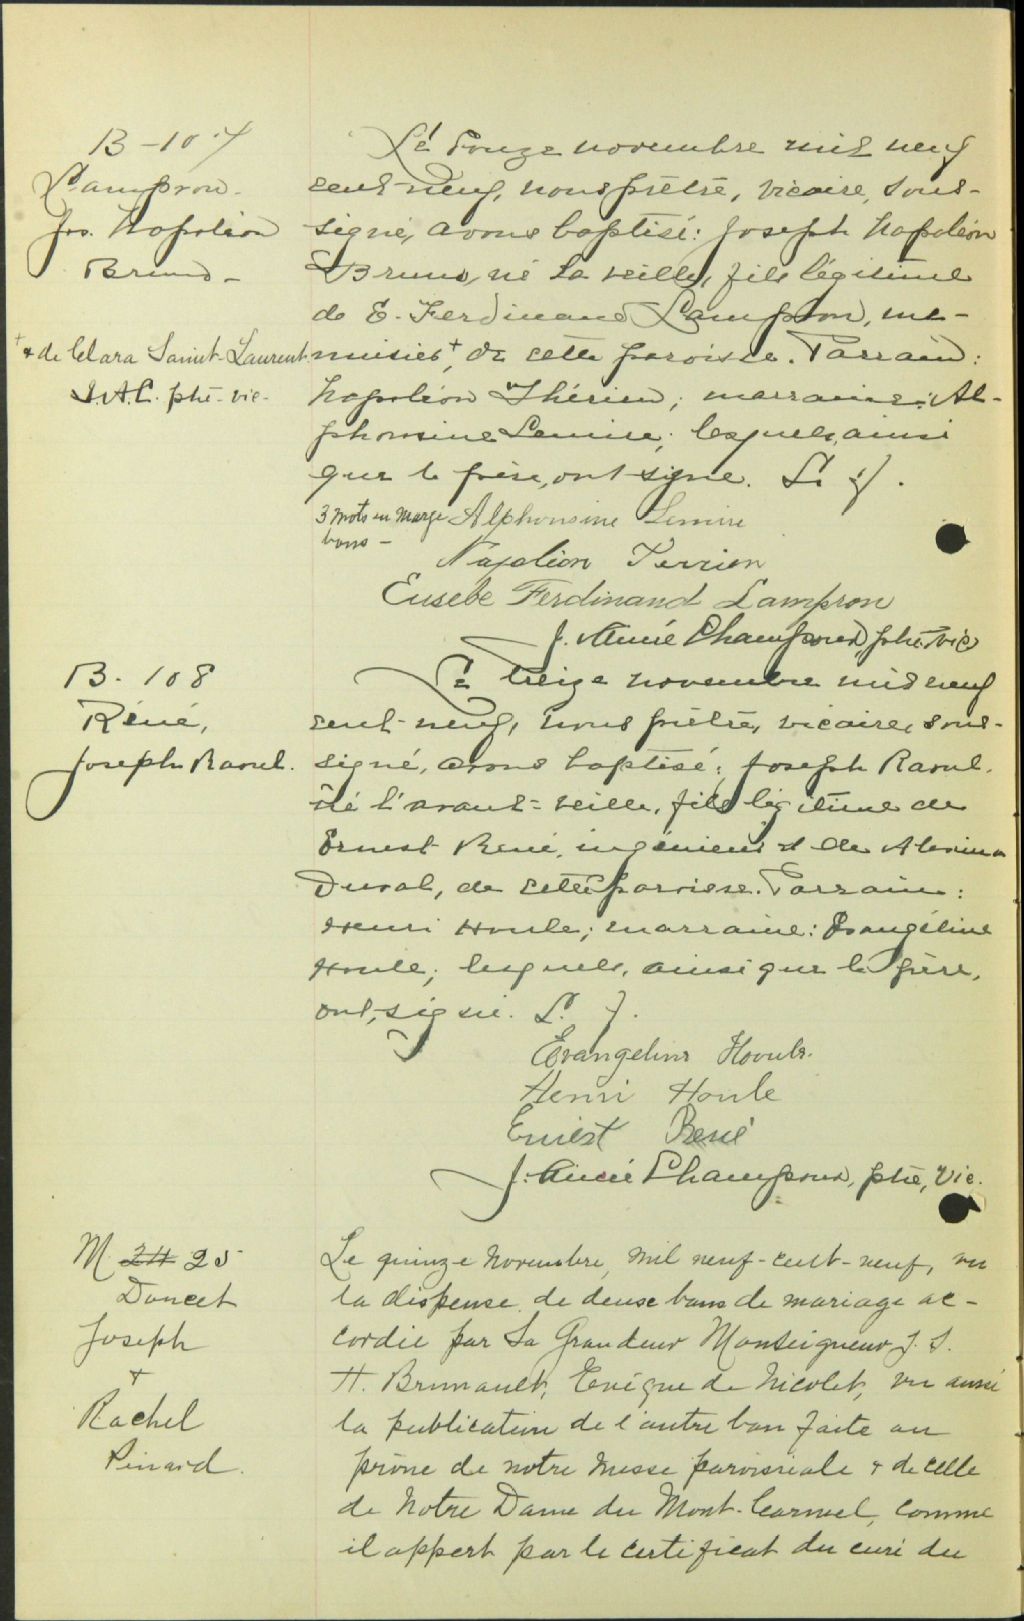 B-107
Lampron.
Jos. Napoléon
Bruno-
+ & de Clara Saint-Laurent
J.A.C. ptre-vic-
Le douze novembre mil neuf
cent-neuf, nous prêtre, vicaire, sous-
signé, avons baptisé: Joseph Napoléon
Bruno, né la veille, fils légitime
de E. Ferdinand Lampron, me-
nuisier+, de cette paroisse. Parrain:
Napoléon Thérien; marraine: Al-
phonsine Lemire; lesquels, ainsi
que le père, ont signé. L. f.
3 mots en marge
bons-
Alphonsine Lemire
Napoléon Terrien
Eusebe Ferdinand Lampron
J. Aimé Champoux, ptre, vic
B. 108
Réné,
Joseph Raoul.
Le treize novembre mil neuf
cent-neuf, nous prêtre, vicaire, sous-
signé, avons baptisé: Joseph Raoul.
né l'avant-veille, fils légitime de
Ernest René, ingénieur et de Alexina
Duval, de cette paroisse. Parrain:
Henri Houle; marraine: Evangéline
Houle; lesquels, ainsi que le père,
ont, signé. L. f.
Evangeline Houle.
Henri Houle
Ernest René
J. Aimé Champoux, ptre, Vic.
M. 24 25
Doucet
Joseph
&
Rachel
Pinard.
Le quinze Novembre, mil neuf-cent-neuf, vu
la dispense de deux bans de mariage ac-
cordée par Sa Grandeur Monseigneur J. S.
H. Brunault, Evêque de Nicolet, vu aussi
la publication de l'autre ban faite au
prône de notre messe paroissiale & de celle
de Notre Dame du Mont-Carmel, comme
il appert par le certificat du curé du